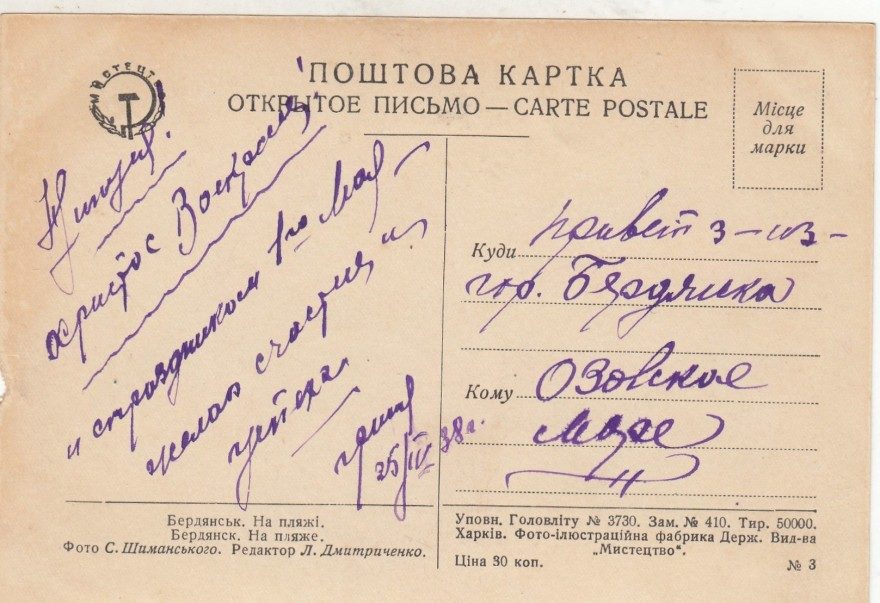 МИСТЕЦТВО
ПОШТОВА КАРТКА
ОТКРЫТОЕ ПИСЬМО — CARTE POSTALE
Місце
для
марки
Христос Воскрес!
и с праздником 1го Мая
желаю счастия и
25/IV 38 г.
Куди привет з-из-
гор. Бердянска
Кому Озовское
Море
Бердянськ. На пляжі.
Бердянск. На пляже.
Фото С. Шиманського. Редактор Л. Дмитриченко.
Уповн. Головліту № 3730. Зам. № 410. Тир. 50000.
Харків. Фото-ілюстраційна фабрика Держ. Вид-ва
„Мистецтво“.
Ціна 30 коп.
№ 3